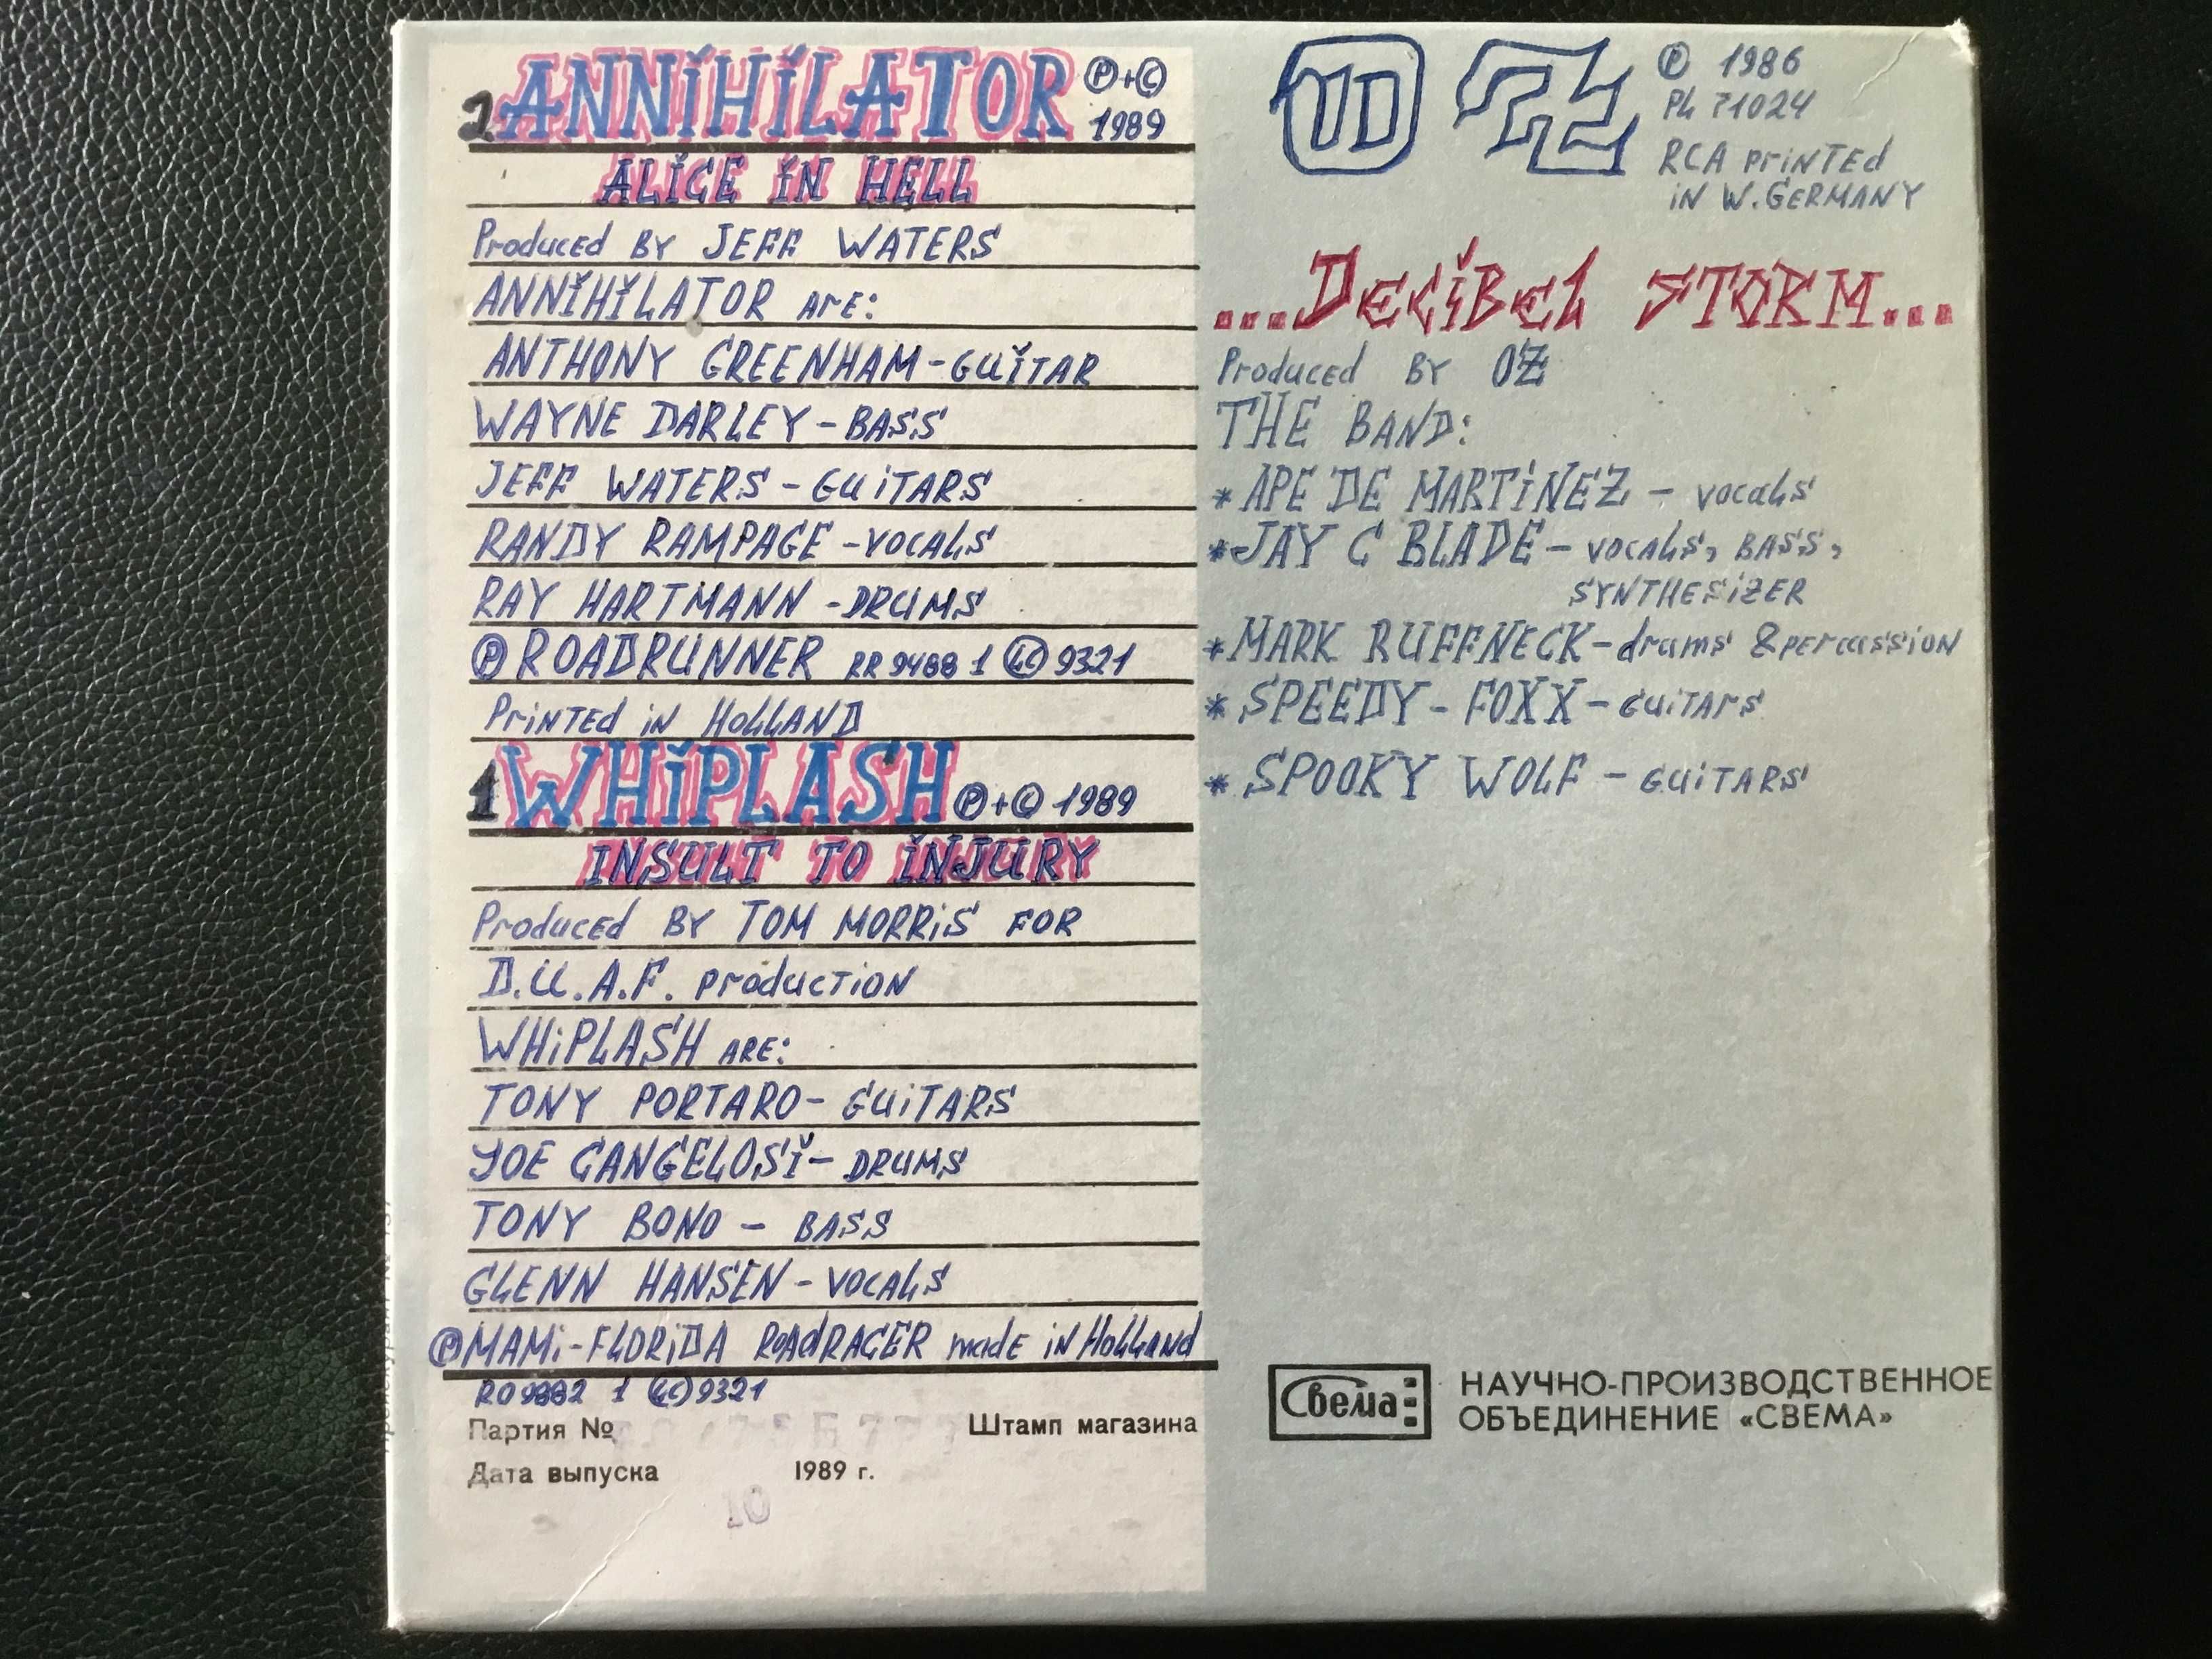 2 ANNiHiLATOR Ⓟ+Ⓒ
1989
ALiCE iN HELL
Produced BY JEFF WATERS
ANNiHiLATOR ArE:
ANTHONY GREENHAM-GUiTAR
WAYNE DARLEY-BASS
JEFF WATERS-GUiTARS
RANDY RAMPAGE-VOCALS
RAY HARTMANN-DRUMS
Ⓟ ROADRUNNER RR 9488 1 9321
PriNTEd iN HOLLAND
1 WHiPLASH Ⓟ+Ⓒ 1989
INSULT TO iNJURY
Produced BY TOM MORRiS FOR
D.U.A.F. production
WHiPLASH ARE:
TONY PORTARO-GUiTARS
JOE CANGELOSi-DRUMS
TONY BONO - BASS
GLENN HANSEN-VOCALS
Ⓟ MAMi-FLORiDA ROAdRACER mAdE iN HoLLANd
RO 9882 1 9321
Партия №
Штамп магазина
Дата выпуска 1989 г.
10
OZ Ⓟ 1986
PL 71024
RCA PriNTEd
iN W.GERMANY
...DECiBEL STORM...
Produced BY OZ
THE BAND:
* APE DE MARTiNEZ - vocals
* JAY C BLADE - vocals, BASS,
SYNTHESiZER
* MARK RUFFNECK-drums & PErcussiON
* SPEEDY-FOXX-GUiTArS
* SPOOKY WOLF-GUiTARS
Свема
НАУЧНО-ПРОИЗВОДСТВЕННОЕ
ОБЪЕДИНЕНИЕ «СВЕМА»